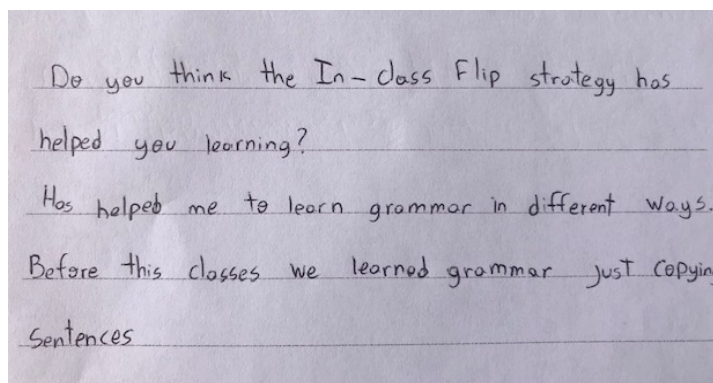 Do you think the In-class Flip strategy has
helped you learning?
Has helped me to learn grammar in different ways.
Before this classes we learned grammar just copyin
sentences